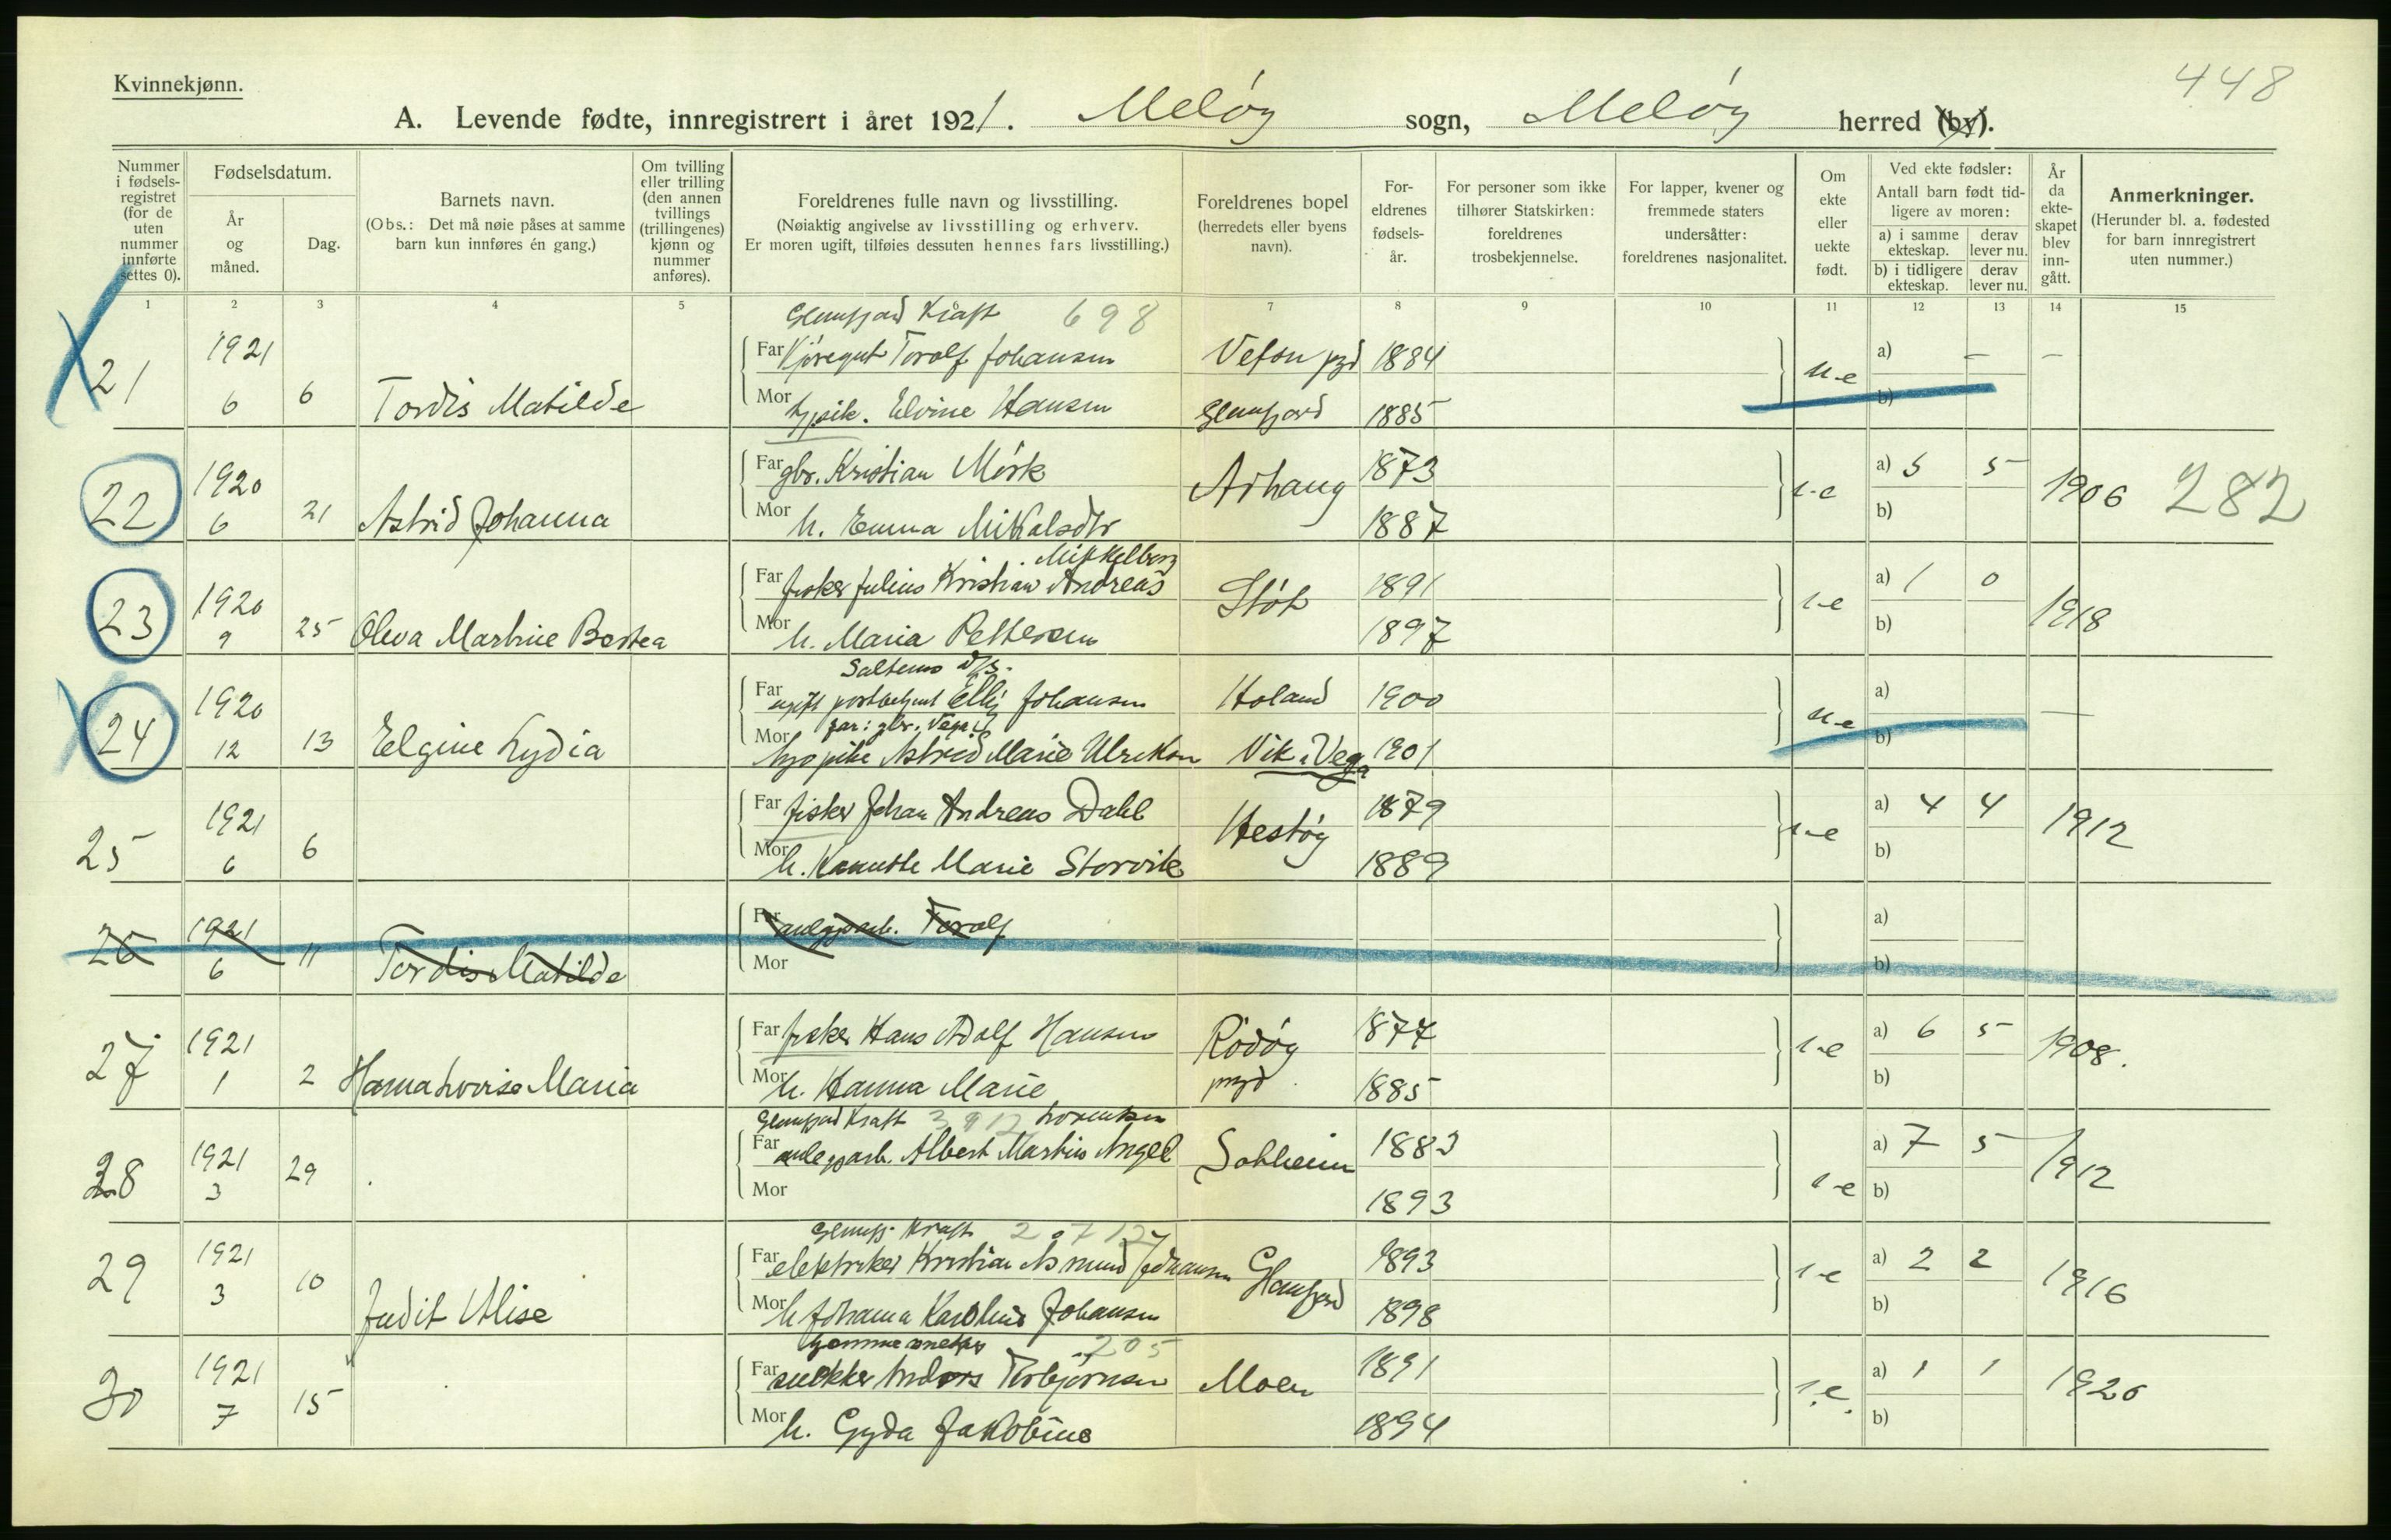 448
Kvinnekjønn.
A. Levende fødte, innregistrert i året 1921. Meløy sogn, Meløy herred (by).
Nummer i fødselsregistret (for de uten nummer innførte settes 0).
Fødselsdatum.
År og måned.
Dag.
Barnets navn.
(Obs.: Det må nøie påses at samme barn kun innføres én gang.)
Om tvilling eller trilling (den annen tvillings (trillingenes) kjønn og nummer anføres).
Foreldrenes fulle navn og livsstilling.
(Nøiaktig angivelse av livsstilling og erhverv. Er moren ugift, tilføies dessuten hennes fars livsstilling.)
Foreldrenes bopel (herredets eller byens navn).
Foreldrenes fødselsår.
For personer som ikke tilhører Statskirken: foreldrenes trosbekjennelse.
For lapper, kvener og fremmede staters undersåtter: foreldrenes nasjonalitet.
Om ekte eller uekte født.
Ved ekte fødsler: Antall barn født tidligere av moren:
a) i samme ekteskap. derav lever nu.
b) i tidligere ekteskap. derav lever nu.
År da ekteskapet blev inngått.
Anmerkninger.
(Herunder bl. a. fødested for barn innregistrert uten nummer.)
1 2 3 4 5 7 8 9 10 11 12 13 14 15
Glomfjord Kraft 698
21 1921 6 6 Tordis Matilde
Far Kjøregut Torolf Johansen Vefsn pgd 1884 u-e a) – –
Mor Elvine Hansen Glomfjord 1885 b)
22 1920 6 21 Astrid Johanna
Far gbr. Kristian Mørk Arhaug 1873 e a) 5 5 1906 282
Mor h. Emma Mikalsdtr 1887 b)
23 1920 9 25 Oleva Martine Bertea
Mikkelborg
Far fisker Julius Kristian Andreas Støt 1891 e a) 1 0 1918
Mor h. Maria Pettersen 1897 b)
24 1920 12 13 Elgine Lydia
Saltens D/S.
Far ugift postbetjent Johansen Holand 1900 u-e a) —
far: gbr. Vega
Mor Astrid Marie Ulriksen Vik i Vega 1901 b)
25 1921 6 6
Far fisker Johan Andreas Dahl Hestøy 1879 e a) 4 4 1912
Mor h. Marie Storvik 1889 b)
26 1921 6 11 Tordis Matilde
Far anlegsarb. Torolf a)
Mor b)
27 1921 1 2 Hanna Lovise Maria
Far fisker Hans Adolf Hansen Rødøy pgd 1877 e a) 6 5 1908.
Mor h. Hanna Marie 1885 b)
28 1921 3 29
Glomfjord Kraft 3912 Lorentsen
Far anlegsarb. Albert Martin Angel Solheim 1883 e a) 7 5 1912
Mor 1893 b)
29 1921 3 10 Judit Alise
Glomfj. Kraft
Far elektriker Kristian Asmund Johansen Glomfjord 1893 e a) 2 2 1916
Mor h. Johanna Johansen 1898 b)
30 1921 7 15
205
Far snekker Anders Torbjørnsen Moen 1891 e. a) 1 1 1920
Mor h. Gyda Jakobine 1894 b)